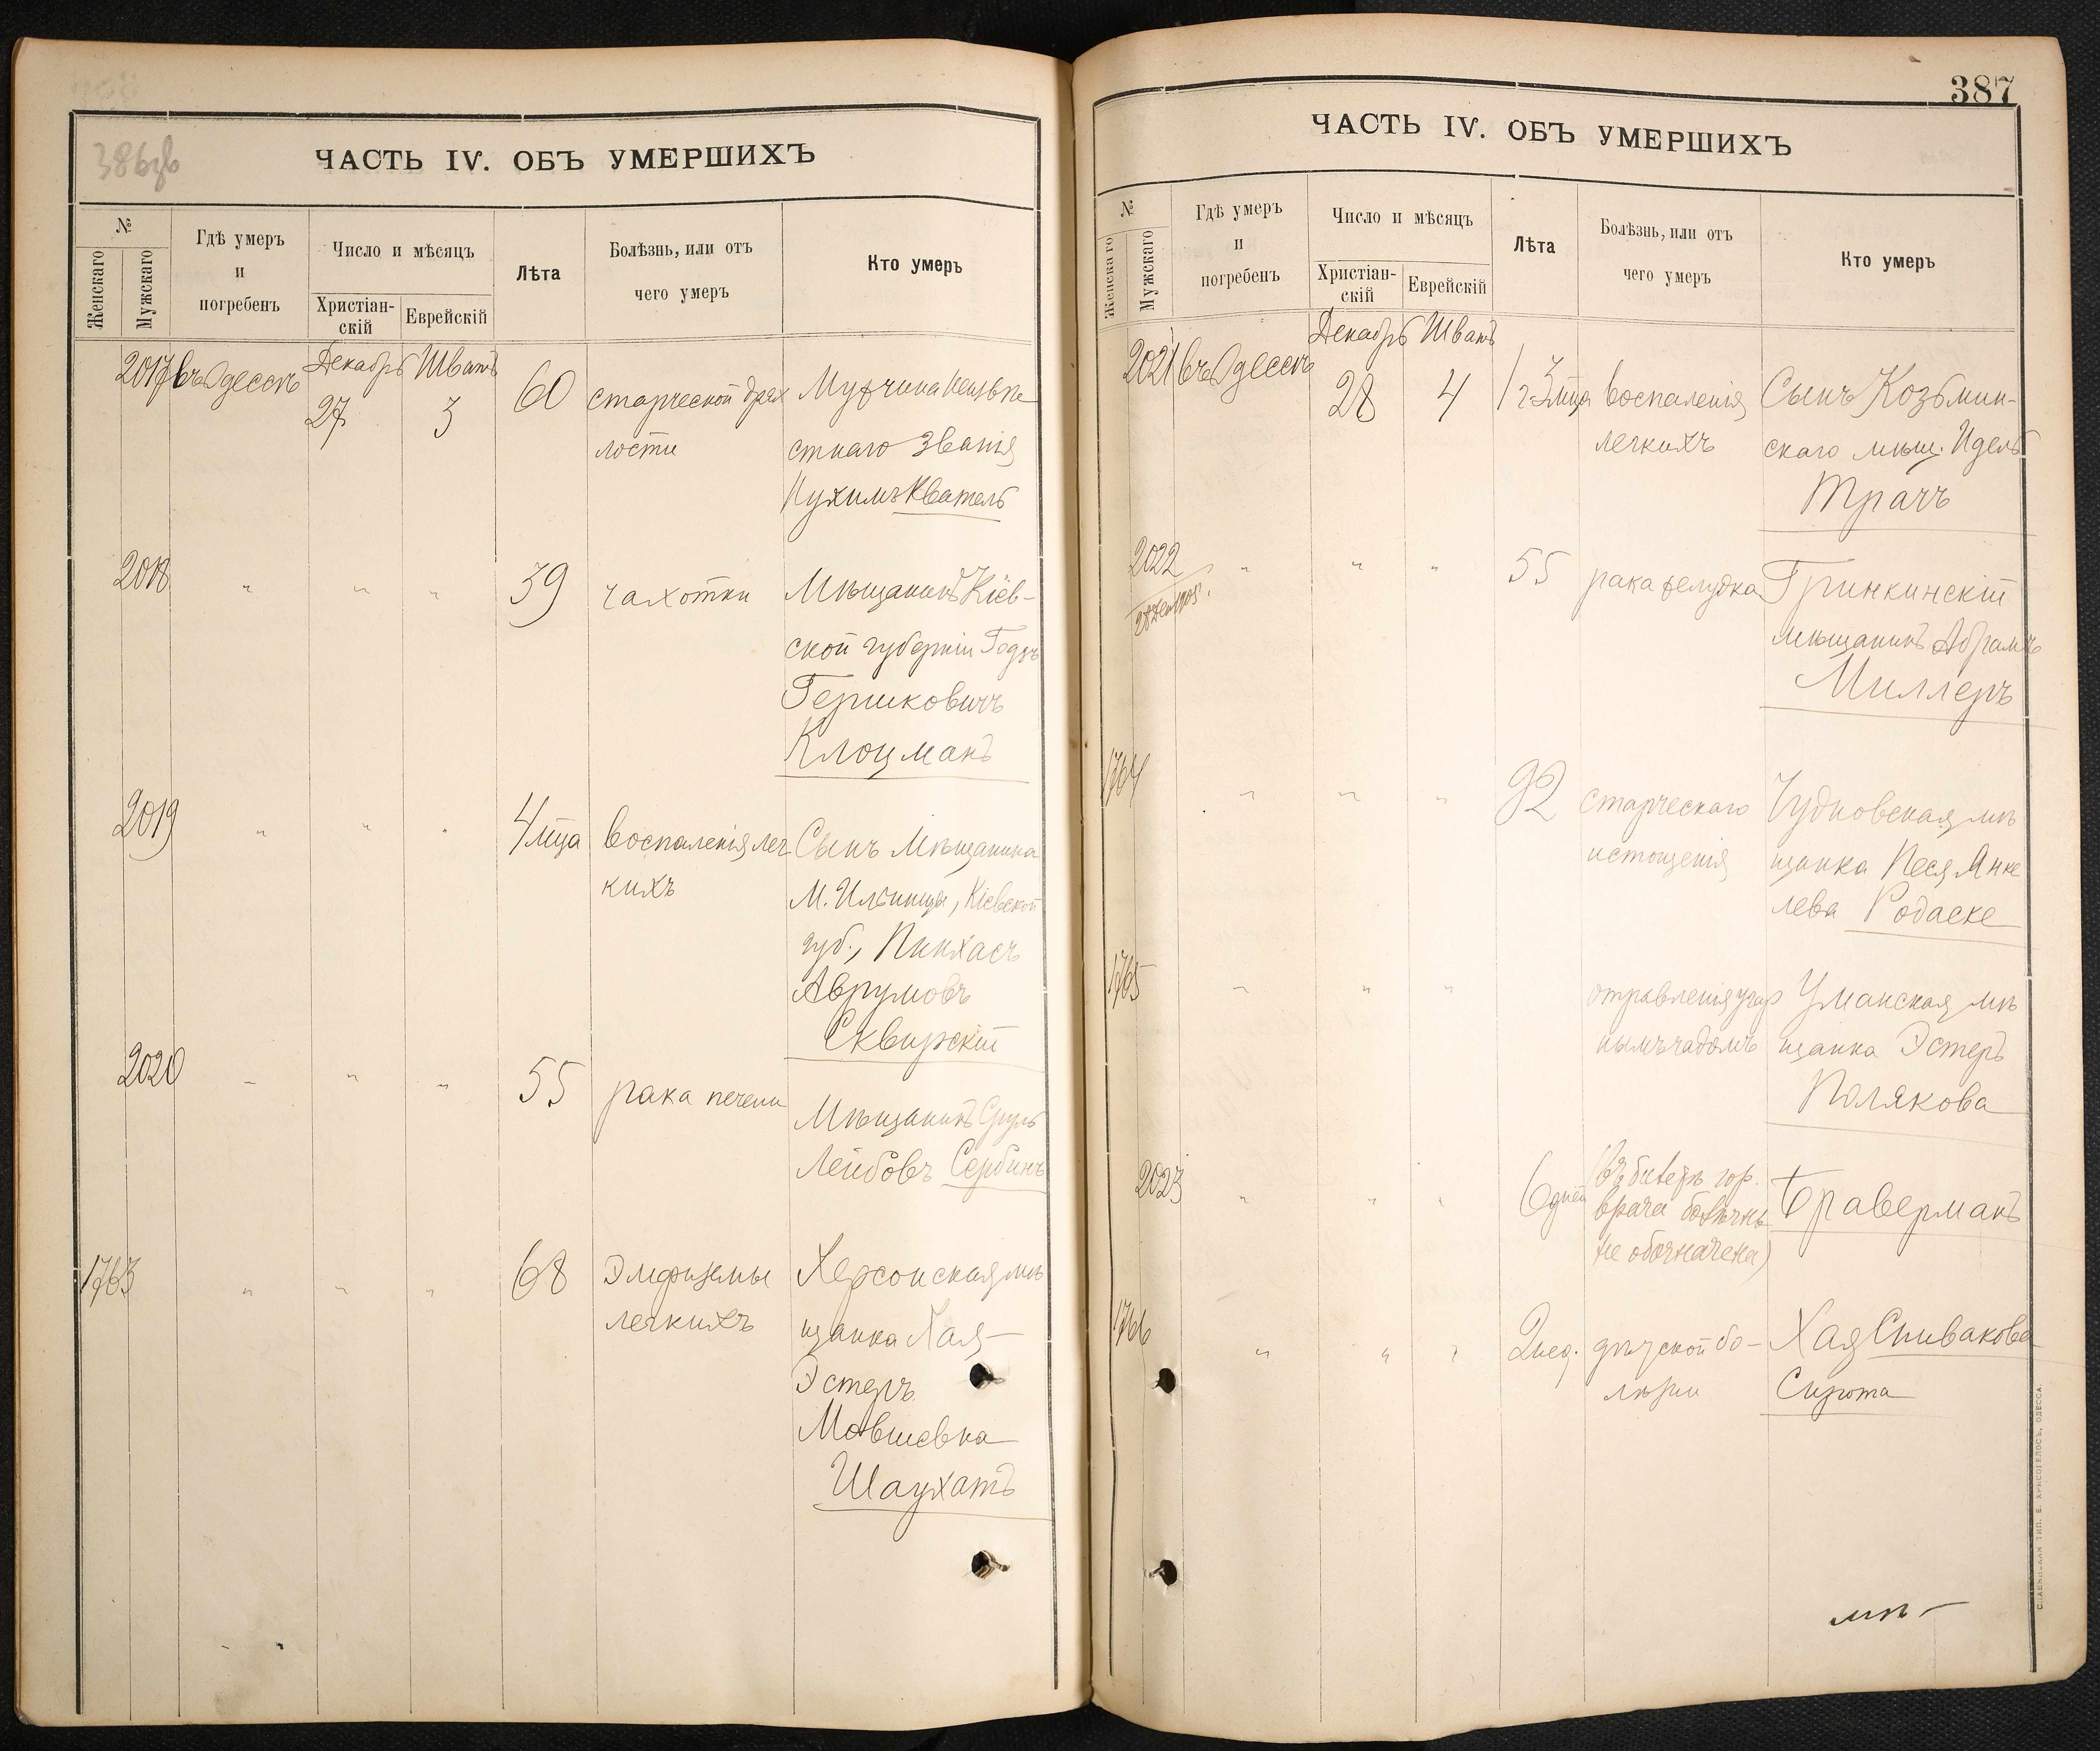 386зв
ЧАСТЬ IV. ОБЪ УМЕРШИХЪ
№
Женскаго
Мужскаго
Гдѣ умеръ
и
погребенъ
Число и мѣсяцъ
Христіан-
скій
Еврейскій
Лѣта
Болѣзнь, или отъ
чего умеръ
Кто умеръ
Декабрь Шватъ
2017 въ Одессѣ 27 3 60 старческой дрях Мужчина неизвѣ
лости стнаго званія
Нухимъ Кватель
2018 " " " 39 чахотки Мѣщанинъ Кіев-
ской губерніи Годзь
Гершковичъ
Клоцманъ
2019 " " " 4 мца воспаленія лег Сынъ Мѣщанина
кихъ М. Ильинцы, Кіевской
губ., Пинхасъ
Аврумовъ
Сквирскій
2020 " " " 55 рака печени Мѣщанинъ Сруль
Лейбовъ Сербинъ
1763 " " " 68 Эмфиземы Херсонская мѣ
легкихъ щанка Хая-
Эстеръ
Мовшевна
Шаухатъ
387
ЧАСТЬ IV. ОБЪ УМЕРШИХЪ
№
Женскаго
Мужскаго
Гдѣ умеръ
и
погребенъ
Число и мѣсяцъ
Христіан-
скій
Еврейскій
Лѣта
Болѣзнь, или отъ
чего умеръ
Кто умеръ
Декабрь Шватъ
2021 въ Одессѣ 28 4 1 г. 3 мца воспаленія Сынъ Козьмин-
легкихъ скаго мѣщ. Идель
Трачъ
2022 " " " 55 рака желудка Гринкинскій
мѣщанинъ Абрамъ
Миллеръ
1764 " " " 92 старческаго Чудновская мѣ
истощенія щанка Песя Янке
лева Родаске
1765 " " " отравленія угар Уманская мѣ
нымъ чадомъ щанка Эстеръ
Полякова
2023 " " " 6 дней (Въ билетѣ гор. Браверманъ
врача болѣзнь
не обозначена)
1766 " " " 2 нед. дѣтской бо- Хая Спивакова
лѣзни Сирота
СЛАВЯНСКАЯ ТИП. Е. ХРИСОГЕЛОСЪ, ОДЕССА.